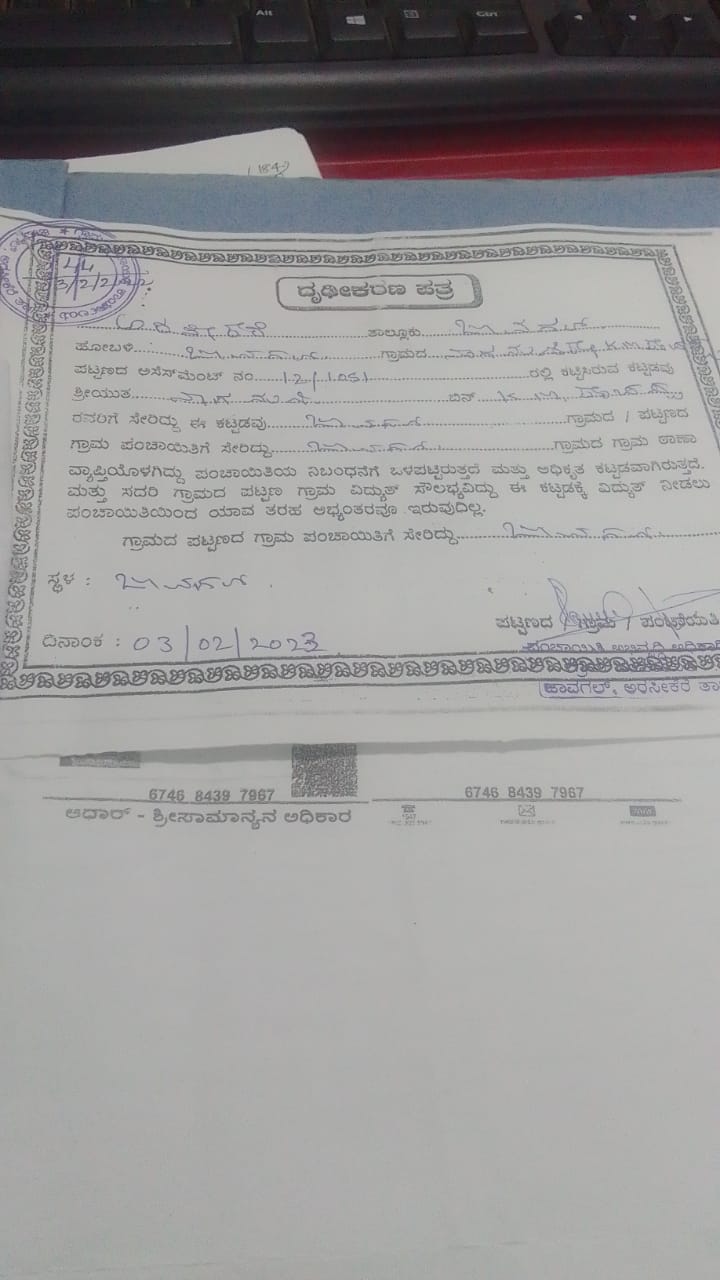 Alt
Ctrl
1847
44
3/2/2
ದೃಢೀಕರಣ ಪತ್ರ
ಅರಸೀಕೆರೆ ತಾಲ್ಲೂಕು ಜಾವಗಲ್
ಹೋಬಳಿ ಜಾವಗಲ್ ಗ್ರಾಮದ
ಪಟ್ಟಣದ ಅಸೆಸ್‌ಮೆಂಟ್ ನಂ. 12/1051 ರಲ್ಲಿ ಕಟ್ಟಿಸಿರುವ ಕಟ್ಟಡವು
ಶ್ರೀಯುತ ಬಿನ್
ರವರಿಗೆ ಸೇರಿದ್ದು ಈ ಕಟ್ಟಡವು ಜಾವಗಲ್ ಗ್ರಾಮದ / ಪಟ್ಟಣದ
ಗ್ರಾಮ ಪಂಚಾಯಿತಿಗೆ ಸೇರಿದ್ದು ಜಾವಗಲ್ ಗ್ರಾಮದ ಗ್ರಾಮ ಠಾಣಾ
ವ್ಯಾಪ್ತಿಯೊಳಗಿದ್ದು ಪಂಚಾಯಿತಿಯ ನಿಬಂಧನೆಗೆ ಒಳಪಟ್ಟಿರುತ್ತದೆ ಮತ್ತು ಅಧಿಕೃತ ಕಟ್ಟಡವಾಗಿರುತ್ತದೆ.
ಮತ್ತು ಸದರಿ ಗ್ರಾಮದ ಪಟ್ಟಣ ಗ್ರಾಮ ವಿದ್ಯುತ್ ಸೌಲಭ್ಯವಿದ್ದು ಈ ಕಟ್ಟಡಕ್ಕೆ ವಿದ್ಯುತ್ ನೀಡಲು
ಪಂಚಾಯಿತಿಯಿಂದ ಯಾವ ತರಹ ಅಭ್ಯಂತರವೂ ಇರುವುದಿಲ್ಲ.
ಗ್ರಾಮದ ಪಟ್ಟಣದ ಗ್ರಾಮ ಪಂಚಾಯಿತಿಗೆ ಸೇರಿದ್ದು ಜಾವಗಲ್
ಸ್ಥಳ : ಜಾವಗಲ್
ಪಟ್ಟಣದ ಗ್ರಾಮ / ಪಂಚಾಯಿತಿ
ದಿನಾಂಕ : 03/02/2023
ಪಂಚಾಯಿತಿ ಅಭಿವೃದ್ಧಿ ಅಧಿಕಾರಿ
ಜಾವಗಲ್, ಅರಸೀಕೆರೆ ತಾ
6746 8439 7967
6746 8439 7967
ಆಧಾರ್ - ಶ್ರೀಸಾಮಾನ್ಯನ ಅಧಿಕಾರ
1947